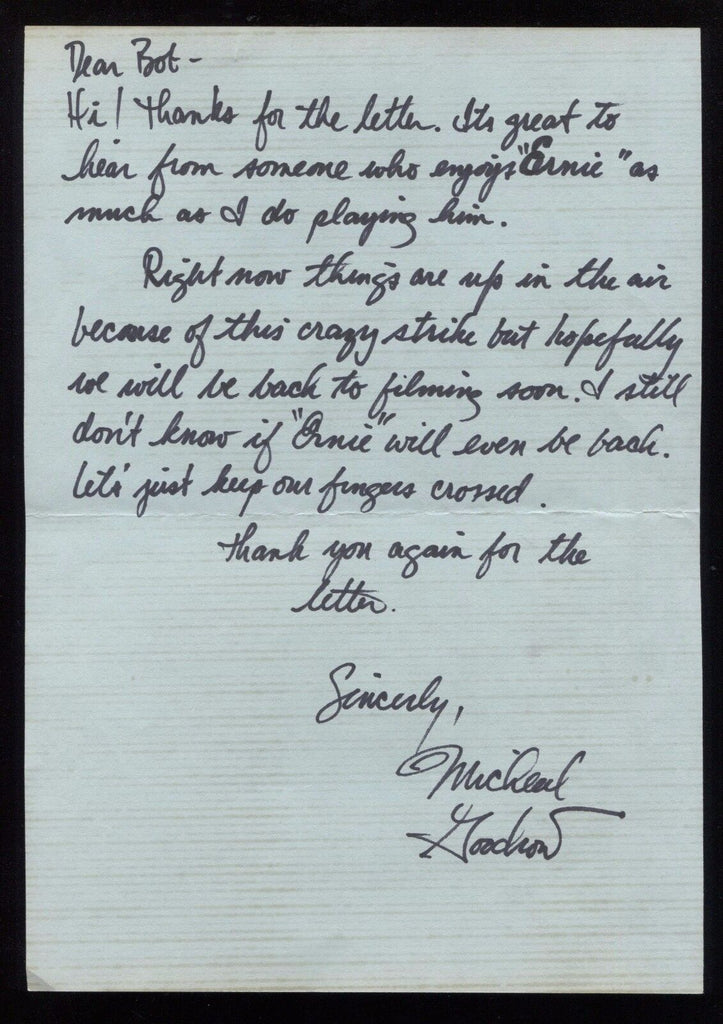 Dear Bob -
Hi! Thanks for the letter. Its great to
hear from someone who enjoys "Ernie" as
much as I do playing him.
Right now things are up in the air
because of this crazy strike but hopefully
we will be back to filming soon. I still
don't know if "Ernie" will even be back.
Let's just keep our fingers crossed.
Thank you again for the
letter.
Sincerly,
Micheal
Goodrow